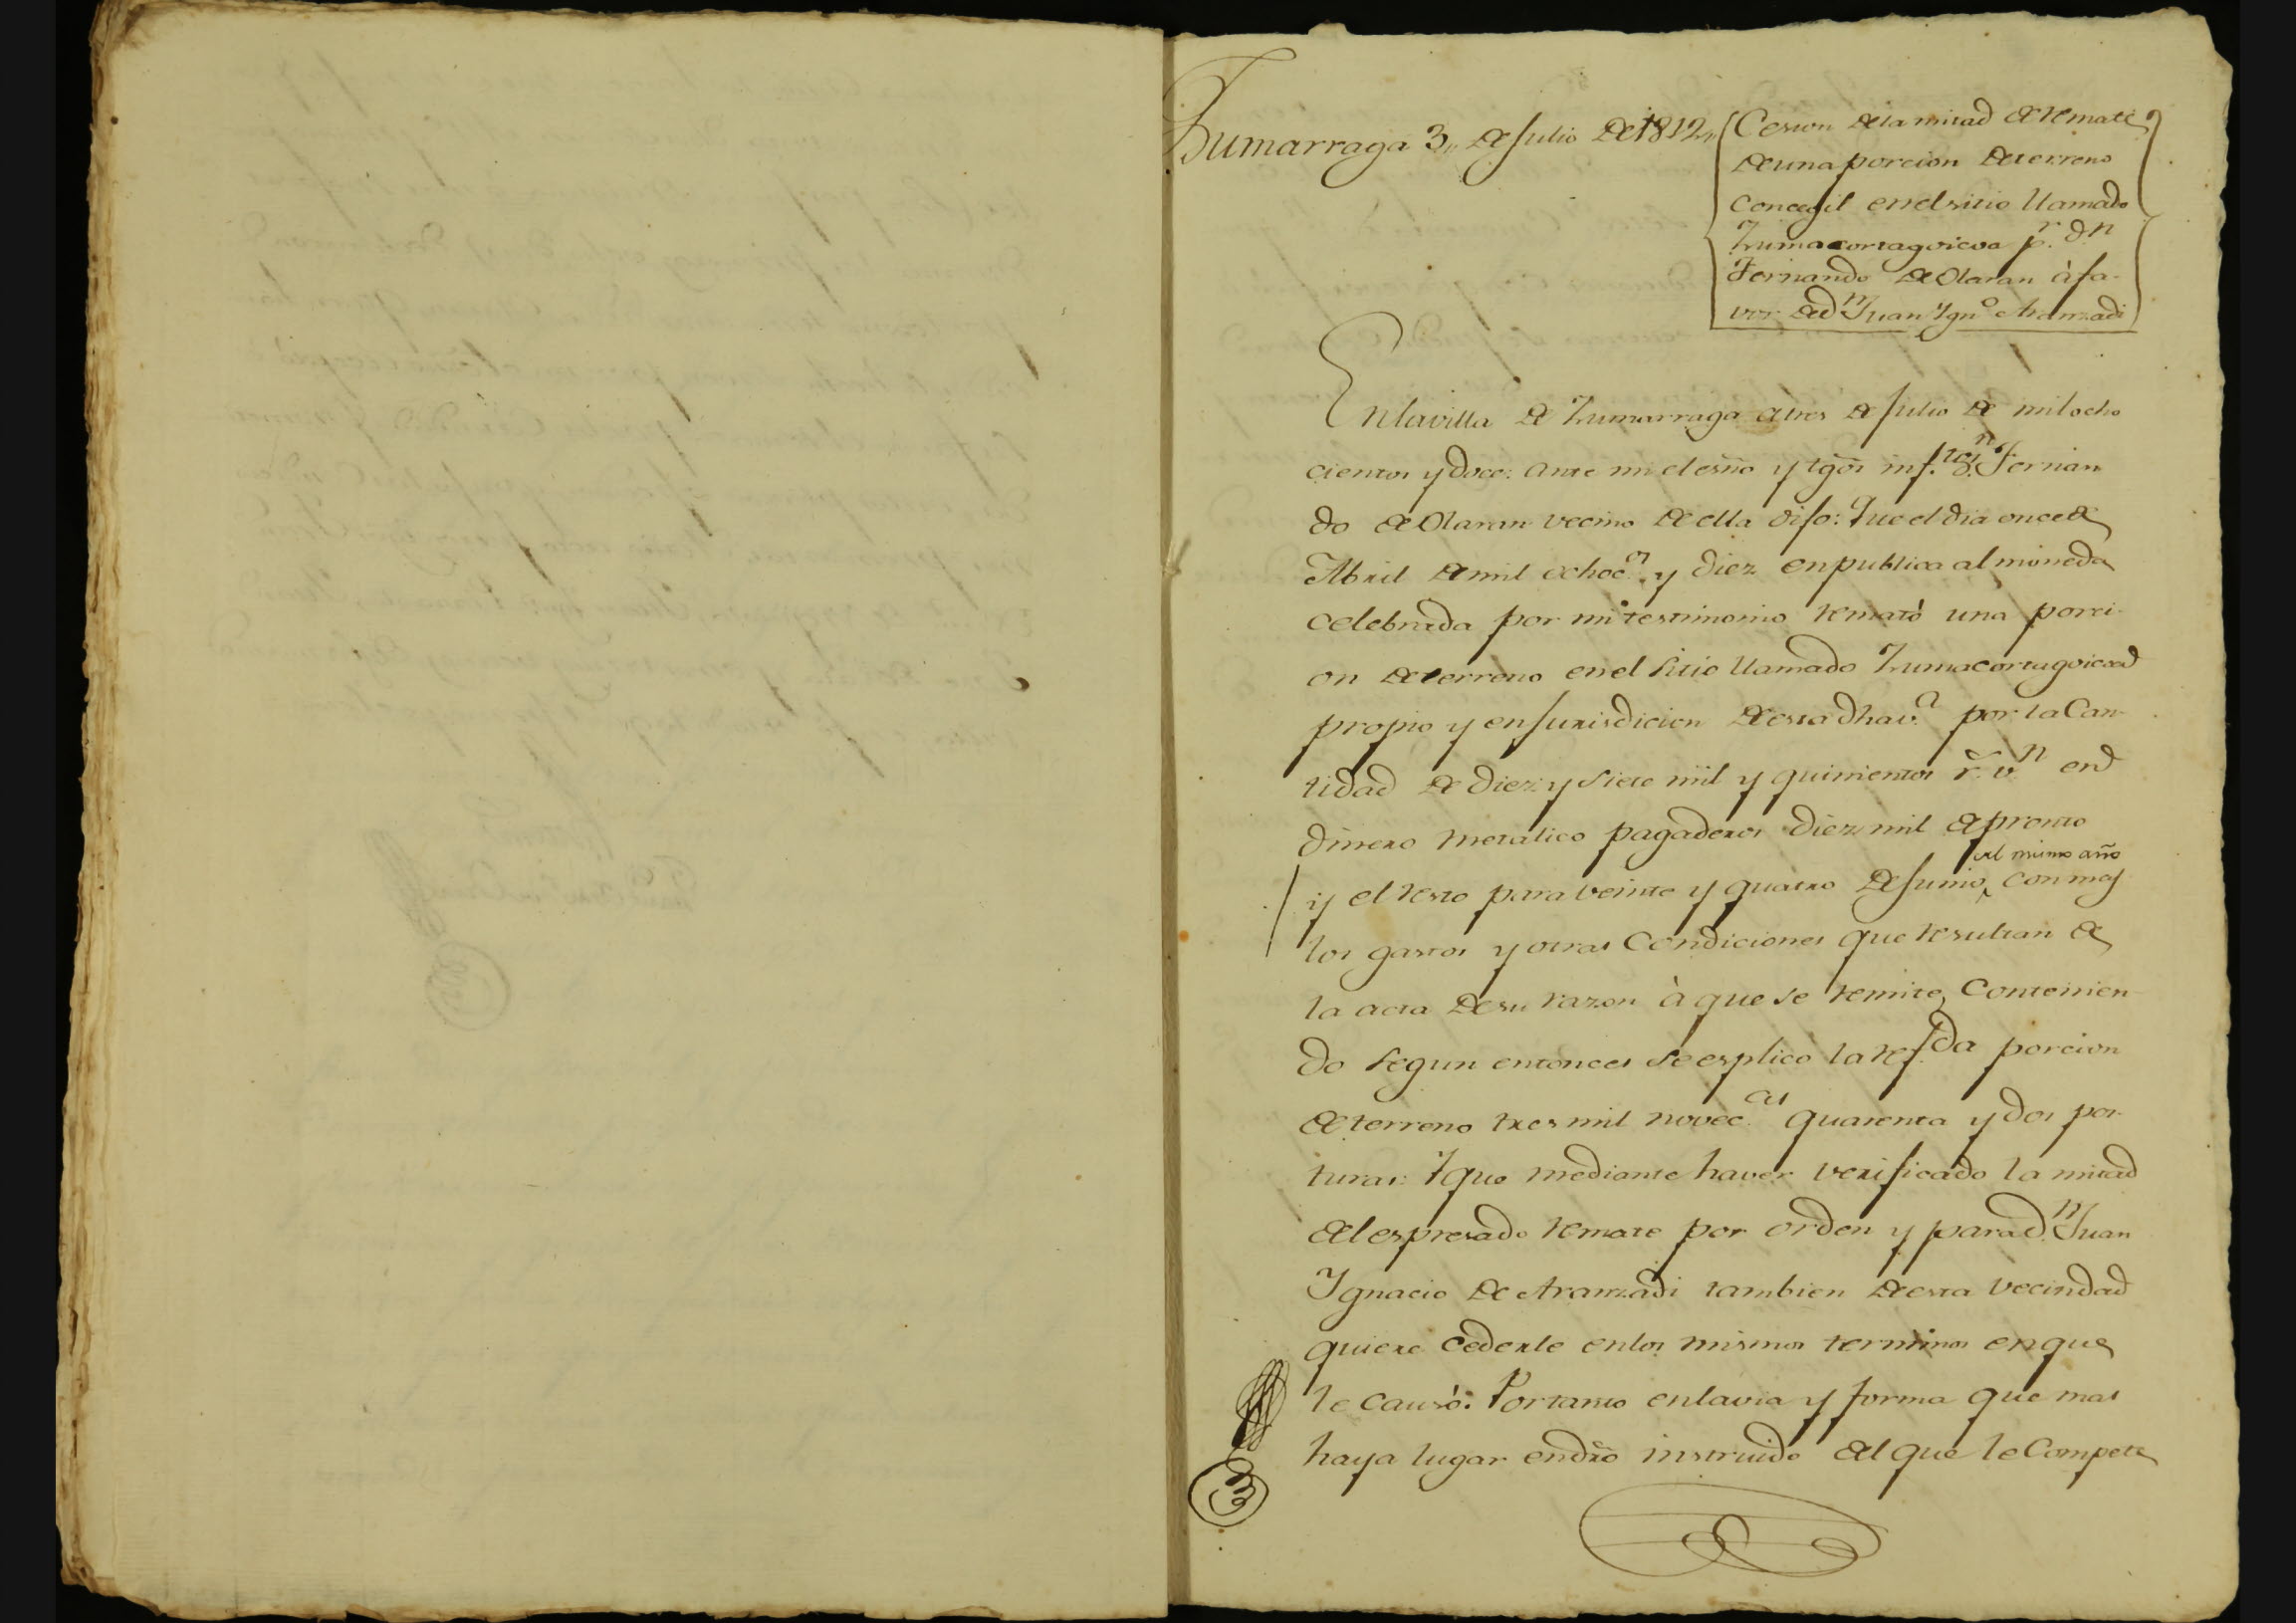 Zumarraga 3,, de Julio de 1812,,
Cesion de la mitad de remate
de una porcion de terreno
concegil en el sitio llamado
Zumacortagoicoa p.r d.n
Fernando de Olaran à fa-
vor de d.n Juan Ygn.o Aranzadi
En la villa de Zumarraga a tres de Julio de mil ocho
cientos y doce: ante mi el esño y tgõs inf.tos d.n Fernan
do de Olaran vecino de ella dijo: Que el dia once de
Abril de mil ochoc.s y diez en publica almoneda
celebrada por mi testimonio remató una porci-
on de terreno en el sitio llamado Zumacortagoicoa
propio y en jurisdicion de esta dha v.a por la Can-
tidad de diez y siete mil y quinientos r.s v.n en
dinero metalico pagaderos diez mil de pronto
del mismo año
y el resto para veinte y quatro de Junio, con mas
los gastos y otras Condiciones que resultan de
la acta de su razon à que se remite, Contenien-
do segun entonces se esplicó la ref.da porcion
de terreno tres mil novec.as quarenta y dos pos-
turas: Y que mediante haver verificado la mitad
del espresado remate por orden y para d.n Juan
Ygnacio de Aranzadi tambien de esta vecindad
quiere cederle en los mismos terminos en que
le causó: Por tanto en la via y forma que mas
haya lugar en dr̃o instruido del que le Compete